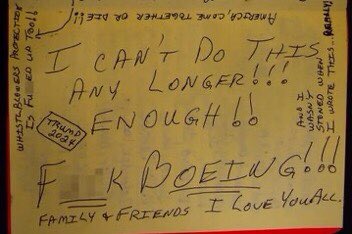 AMERICA, COME TOGETHER OR DIE!!
I CAN'T DO THIS
ANY LONGER!!!
ENOUGH!!
F K BOEING!!!
FAMILY & FRIENDS I LOVE YOU ALL.
TRUMP
2024
WHISTLEBLOWERS PROTECTION
IS FU ED UP TOO!!
AND I
WASN'T
STONED WHEN
I WROTE THIS... REALLY!